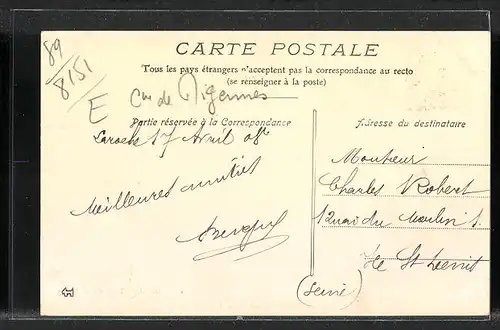 89
8151
E
CARTE POSTALE
Tous les pays étrangers n'acceptent pas la correspondance au recto
(se renseigner à la poste)
Cne de Migennes
Partie réservée à la Correspondance
Adresse du destinataire
Laroche 17 Avril 08
Meilleures amitiés
Monsieur
Charles Robert
1 Quai du Moulin
Ile St Denis
(Seine)